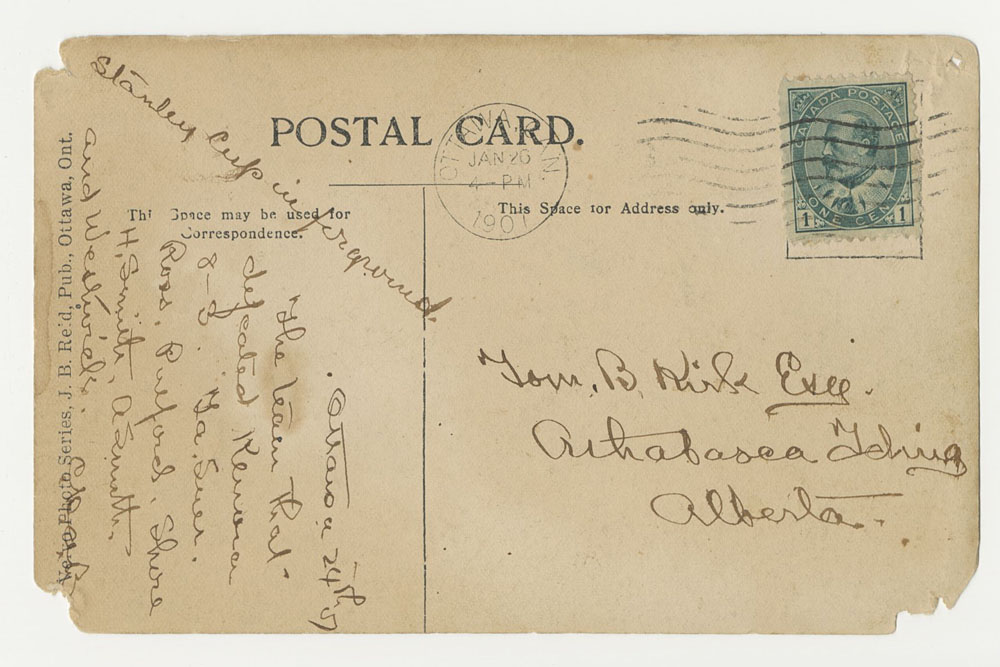 POSTAL CARD.
OTTAWA, CAN.
JAN 26
4- PM
1901
CANADA POSTAGE
1 ONE CENT 1
This Space may be used for
Correspondence.
This Space for Address only.
Stanley Cup in forground.
Ottawa 24th
The team that
defeated Kenora
8-3.
Ross. Pulford. Shore
H, Smith, A Smith.
and Westwick.
Photo Series, J. B. Reid, Pub., Ottawa, Ont.
Tom. B. Kirk Esq.
Athabasca Lding
Alberta.